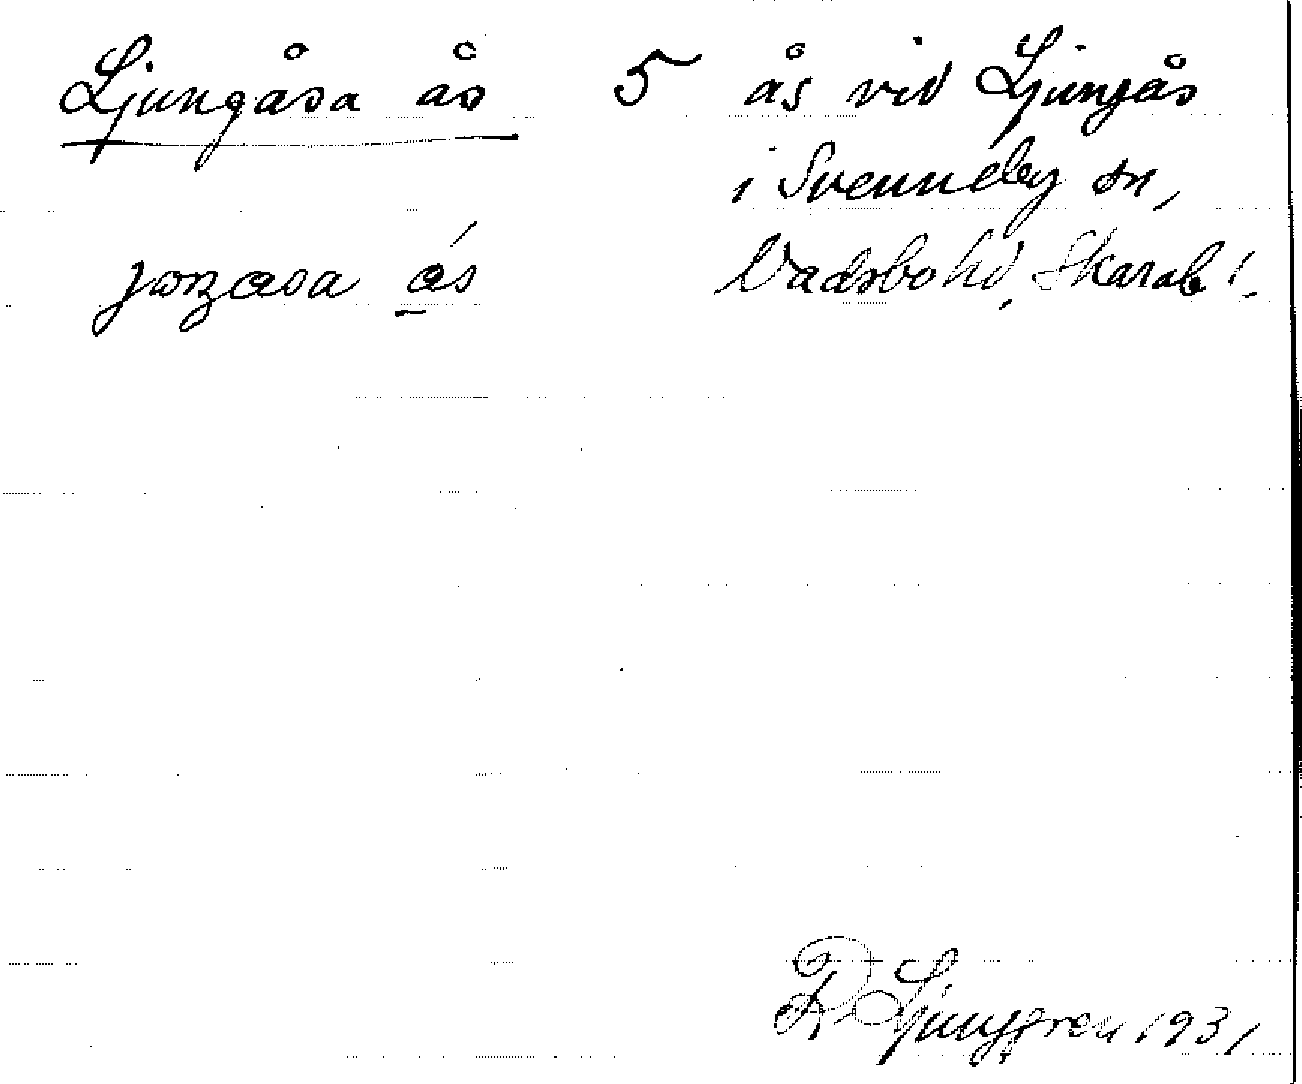 Ljungåsa ås 5 ås vid Ljungås
i Svenneby sn,
Vadsbo hd, Skarab l.
R. Ljunggren 1931